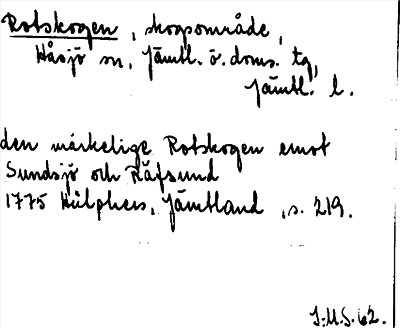 Rotskogen, skogsområde,
Håsjö sn, Jämtl. ö. doms. tg,
Jämtl. l.
den märkelige Rotskogen emot
Sundsjö och Räfsund
1775 Hülphers, Jämtland, s. 219.
J.M.S. 62.